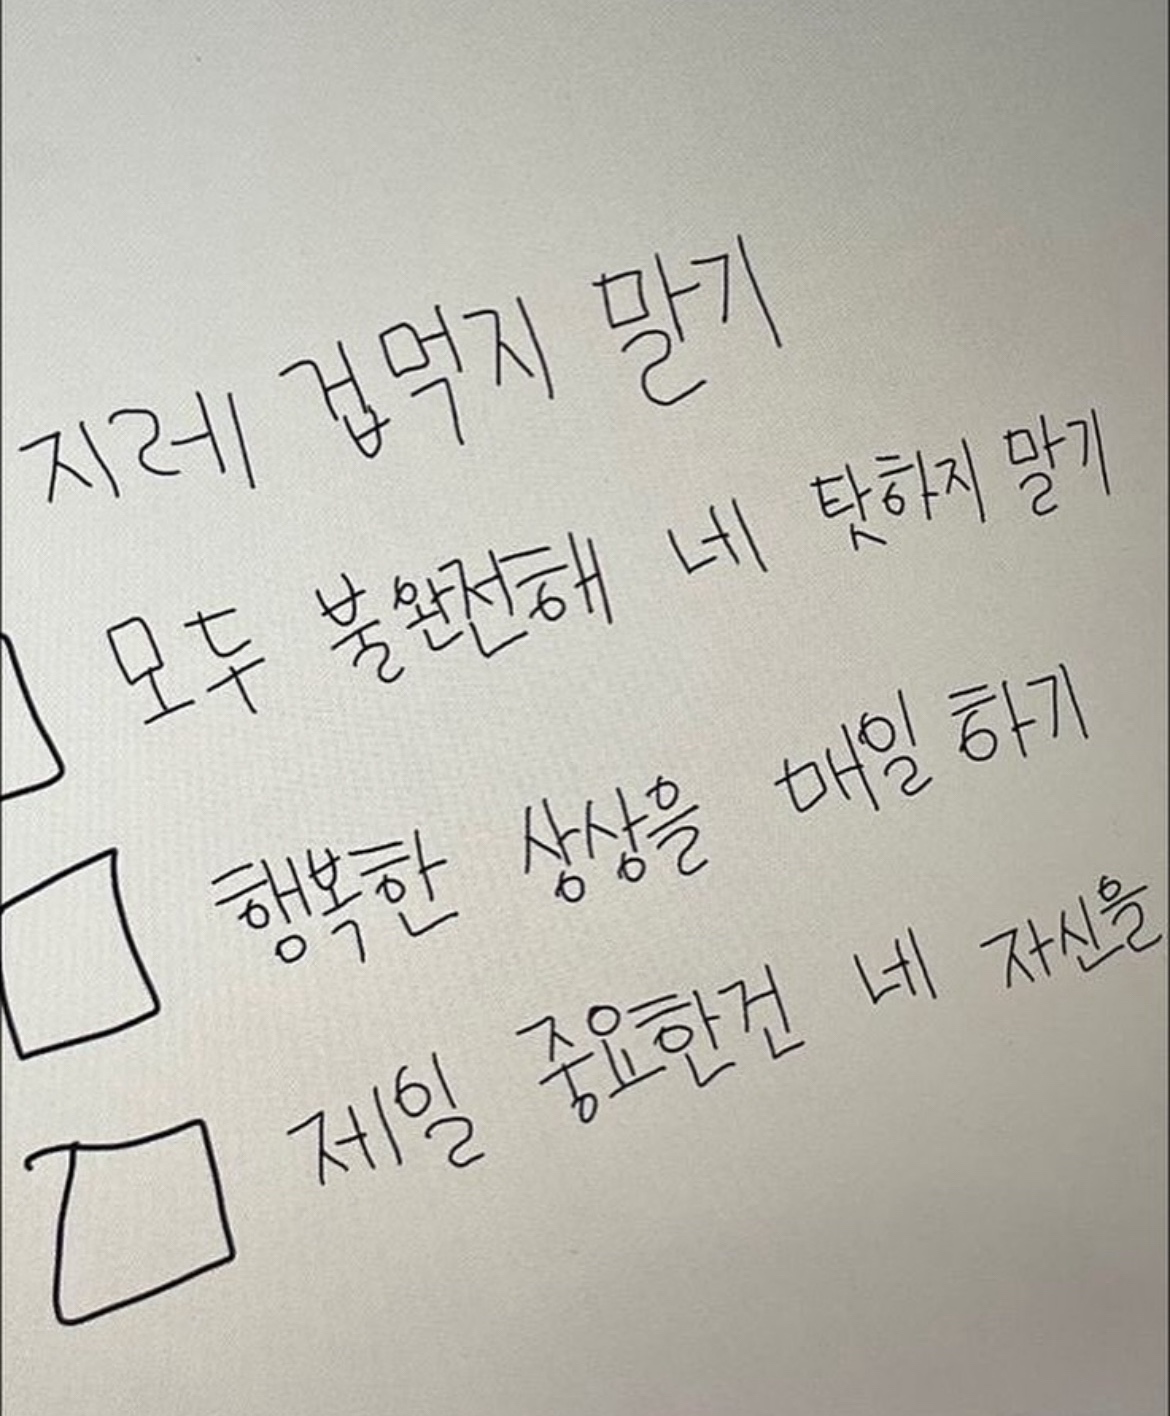 지레 겁먹지 말기
모두 불완전해 네 탓하지 말기
행복한 상상을 매일 하기
제일 중요한건 네 자신을